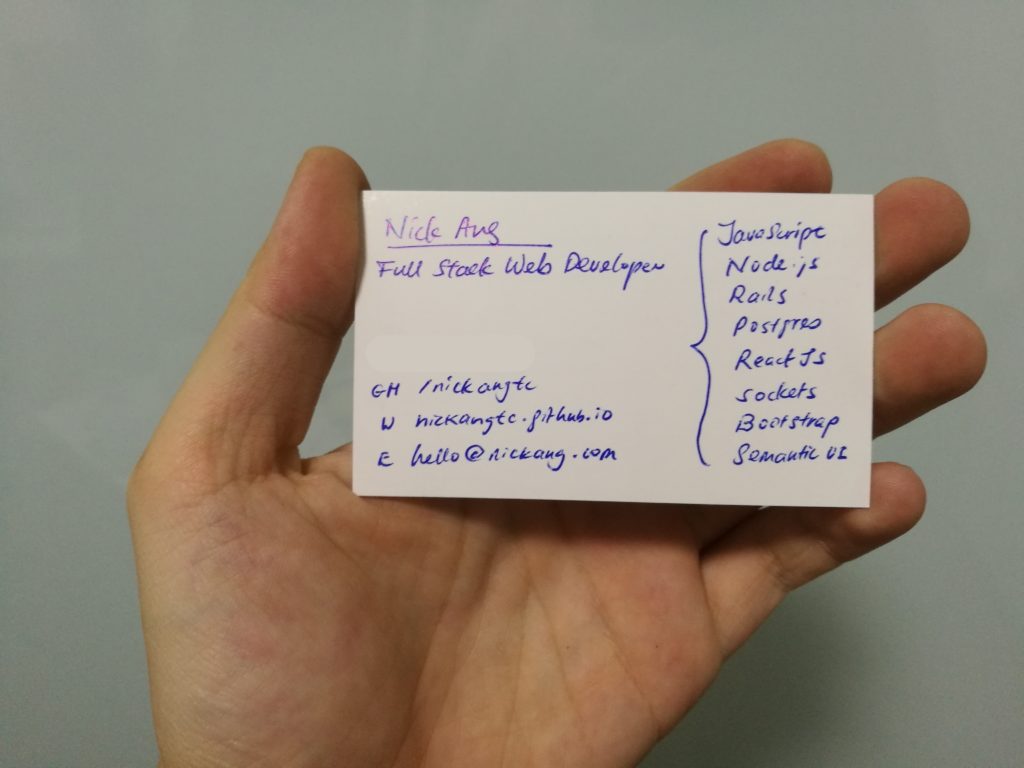 Nick Ang
Full Stack Web Developer
GH /nickangtc
W nickangtc.github.io
E hello@nickang.com
JavaScript
Node.js
Rails
Postgres
React Js
sockets
Bootstrap
Semantic UI